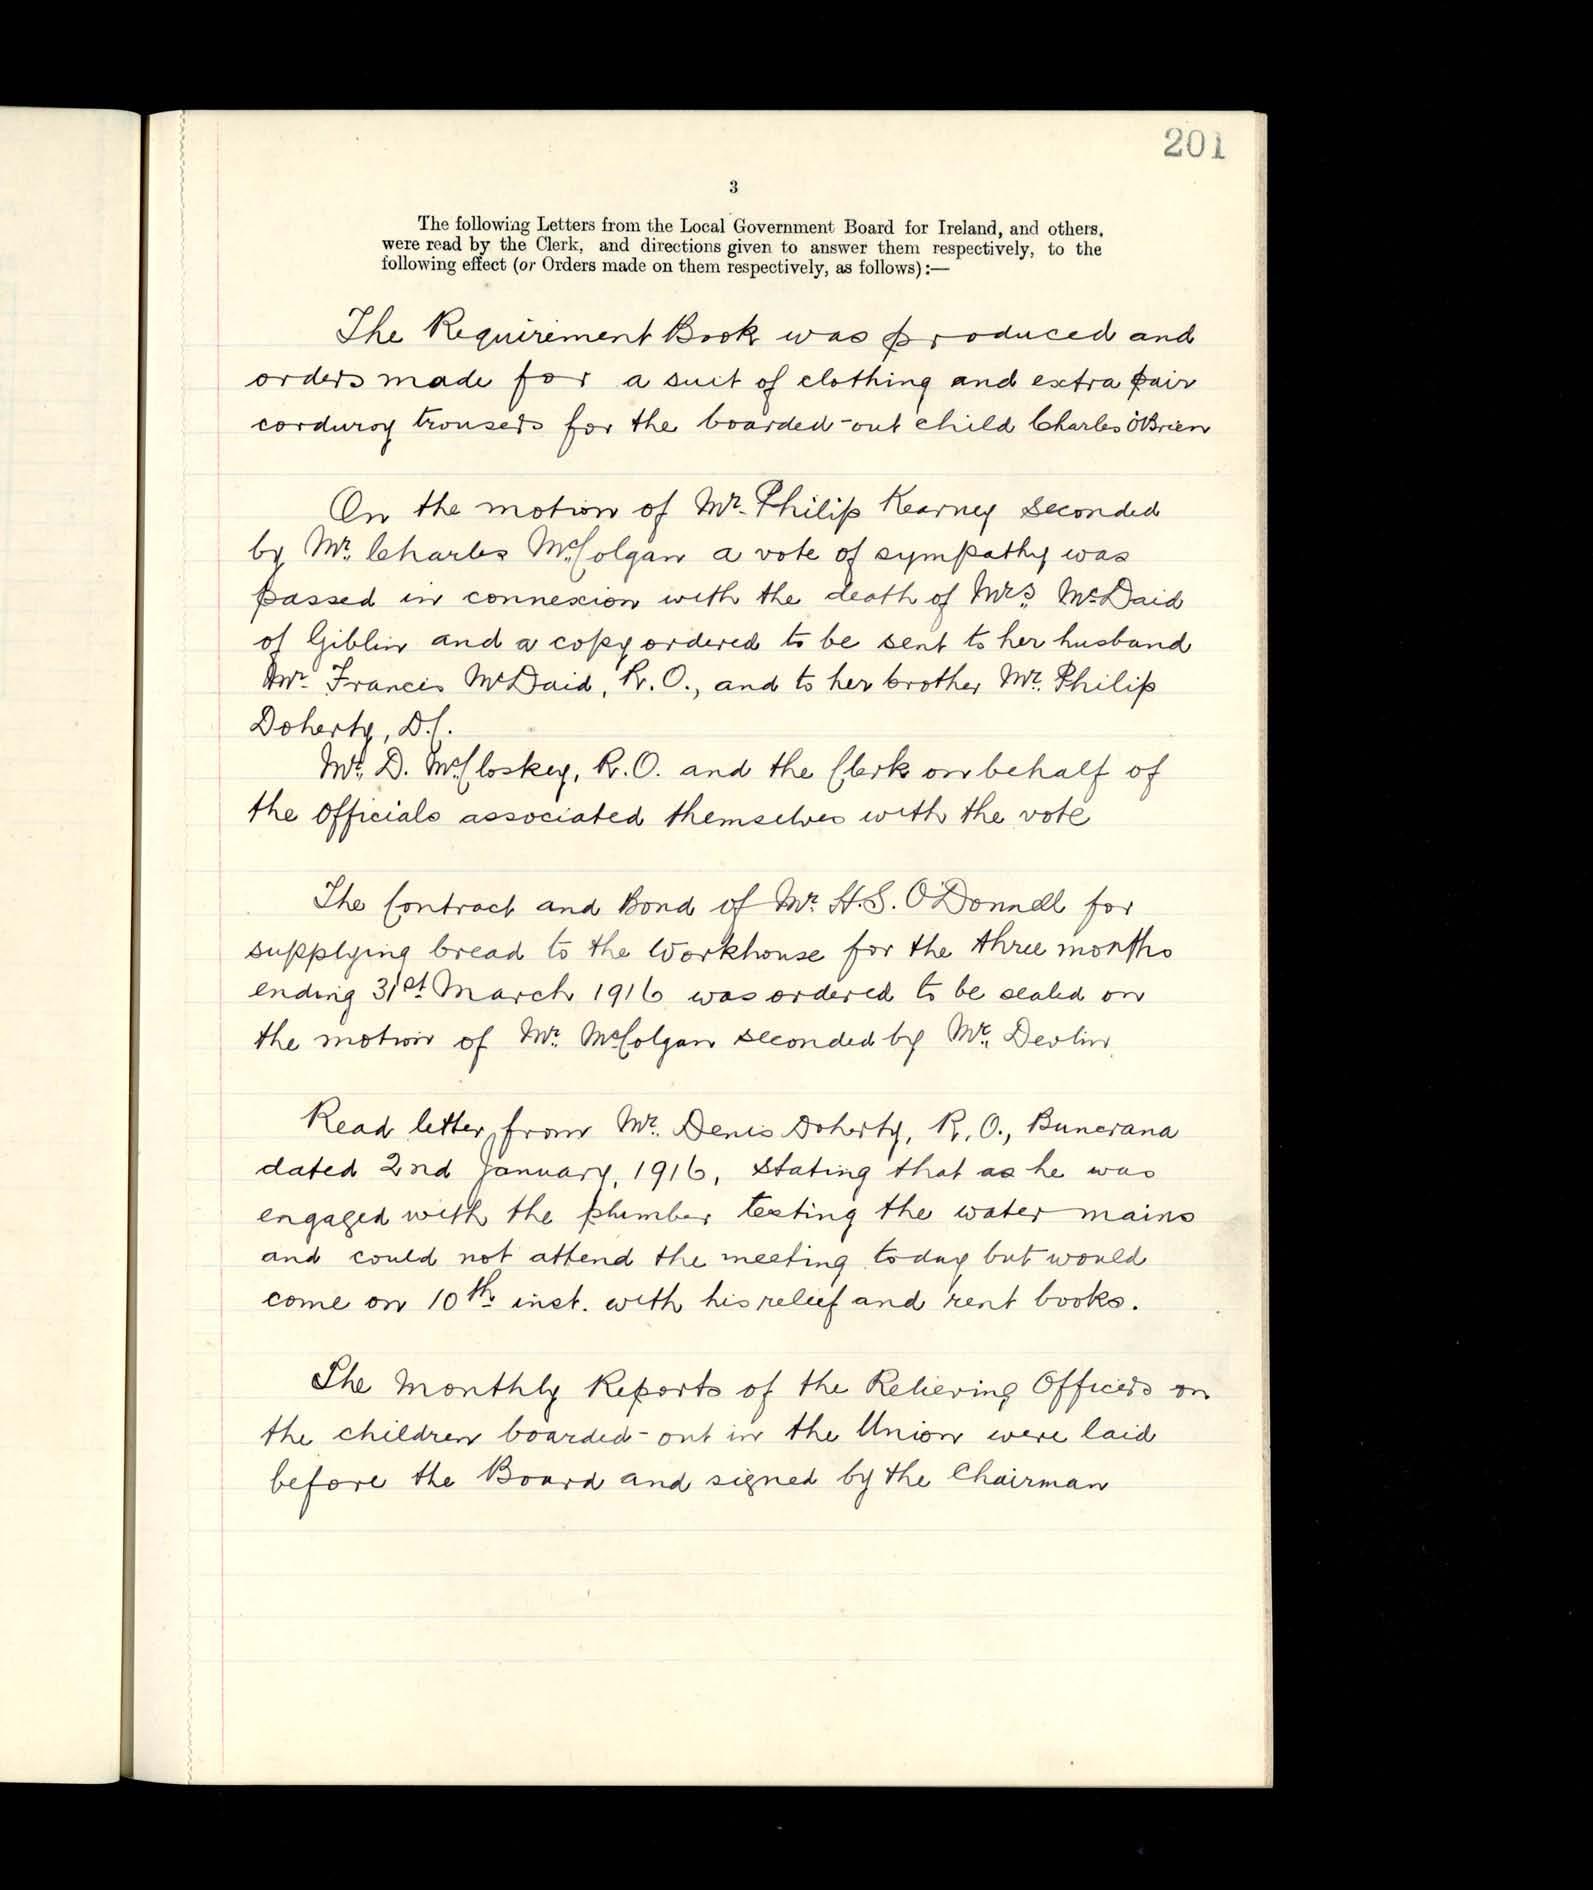 201
3
The following Letters from the Local Government Board for Ireland, and others,
were read by the Clerk, and directions given to answer them respectively, to the
following effect (or Orders made on them respectively, as follows):—
The Requirement Book was produced and
orders made for a suit of clothing and extra pair
corduroy trousers for the boarded-out child Charles O'Brien
On the motion of Mr. Philip Kearney seconded
by Mr. Charles McColgan a vote of sympathy was
passed in connexion with the death of Mrs. McDaid
of Giblin and a copy ordered to be sent to her husband
Mr. Francis McDaid, R.O., and to her brother Mr. Philip
Doherty, D.C.
Mr. D. McCloskey, R.O. and the Clerk on behalf of
the Officials associated themselves with the vote
The Contract and Bond of Mr. H.S. O'Donnell for
supplying bread to the Workhouse for the three months
ending 31st March 1916 was ordered to be sealed on
the motion of Mr. McColgan seconded by Mr. Devlin.
Read letter from Mr. Denis Doherty, R.O., Buncrana
dated 2nd January, 1916, stating that as he was
engaged with the plumber testing the water mains
and could not attend the meeting today but would
come on 10th inst. with his relief and rent books.
The Monthly Reports of the Relieving Officers on
the children boarded-out in the Union were laid
before the Board and signed by the Chairman